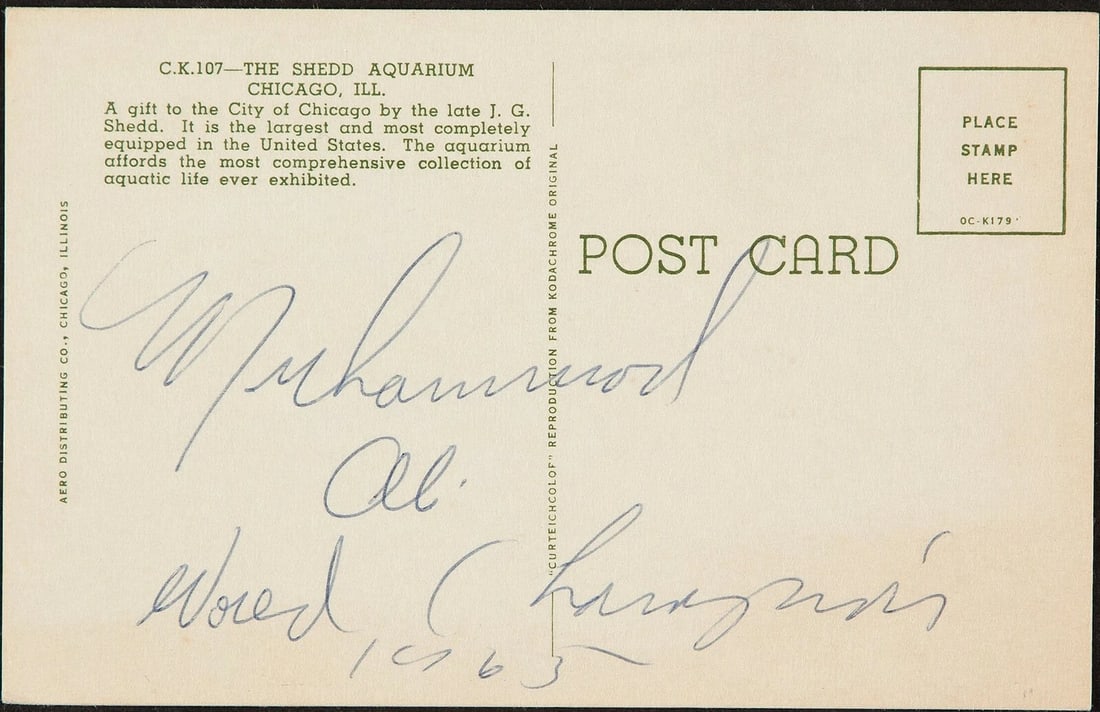 C.K.107—THE SHEDD AQUARIUM
CHICAGO, ILL.
A gift to the City of Chicago by the late J. G.
Shedd. It is the largest and most completely
equipped in the United States. The aquarium
affords the most comprehensive collection of
aquatic life ever exhibited.
AERO DISTRIBUTING CO., CHICAGO, ILLINOIS
"CURTEICHCOLOR" REPRODUCTION FROM KODACHROME ORIGINAL
PLACE
STAMP
HERE
OC-K179
POST CARD
Muhammad
Ali
World
1965